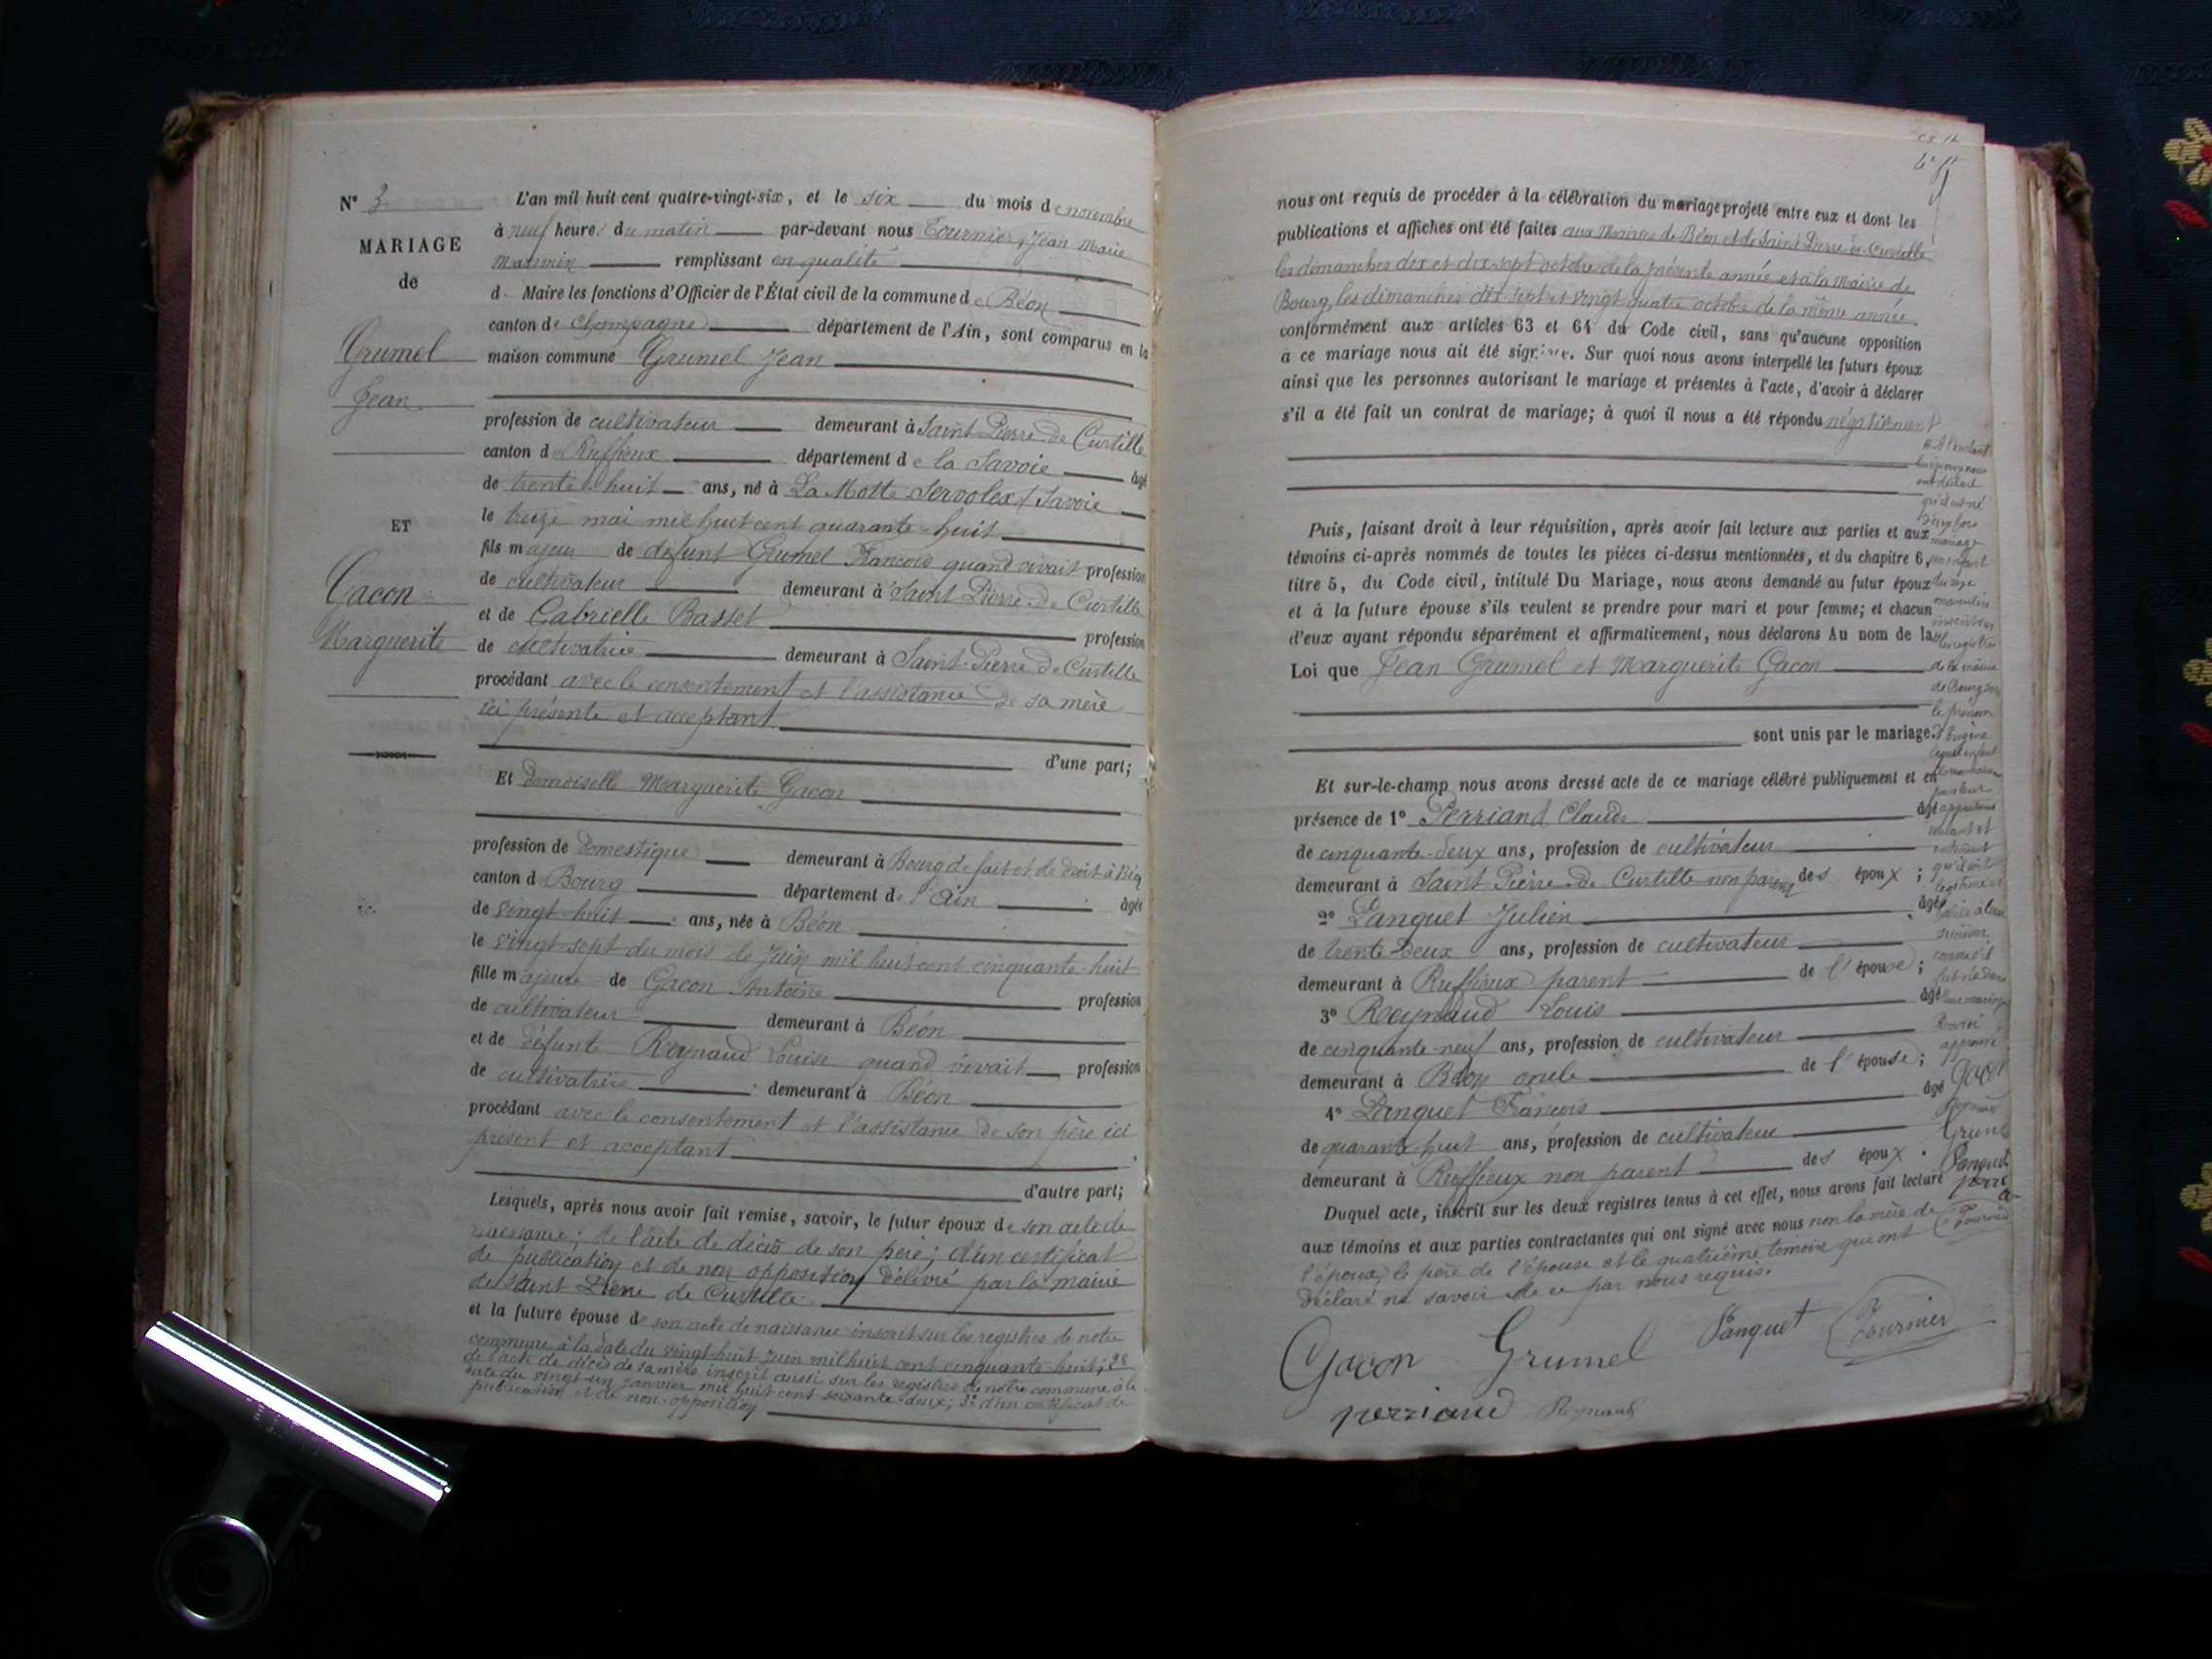 N° 3
MARIAGE
de
Grumel
Jean
ET
Gacon
Marguerite
L'an mil huit cent quatre-vingt-six, et le six du mois de novembre
à neuf heures du matin par-devant nous Tournier, Jean Marie
remplissant en qualité
d Maire les fonctions d'Officier de l'État civil de la commune de Béon
canton de Champagne département de l'Ain, sont comparus en la
maison commune Grumel Jean
profession de cultivateur demeurant à Saint Pierre de Curtille
canton de Ruffieux département de la Savoie âgé
de trente-huit ans, né à La Motte Servolex / Savoie
le treize mai mil huit cent quarante-huit
fils majeur de défunt Grumel Francois quand vivait profession
de cultivateur demeurant à Saint Pierre de Curtille
et de Gabrielle Basset profession
de cultivatrice demeurant à Saint-Pierre de Curtille
procédant avec le consentement et l'assistance de sa mère
ici présente et acceptant
d'une part;
Et demoiselle Marguerite Gacon
profession de domestique demeurant à Bourg de fait et de droit à Béon
canton d Bourg département de l'Ain âgée
de vingt-huit ans, née à Béon
le vingt-sept du mois de Juin mil huit cent cinquante-huit
fille majeure de Gacon Antoine profession
de cultivateur demeurant à Béon
et de défunte Reynaud Louise quand vivait profession
de cultivatrice demeurant à Béon
procédant avec le consentement et l'assistance de son père ici
présent et acceptant
d'autre part;
Lesquels, après nous avoir fait remise, savoir, le futur époux de son acte de
naissance; de l'acte de décès de son père; d'un certificat
de publication et de non opposition délivré par la mairie
de Saint Pierre de Curtille
et la future épouse de son acte de naissance inscrit sur les registres de notre
commune à la date du vingt-huit Juin mil huit cent cinquante-huit; 2°
de l'acte de décès de sa mère inscrit aussi sur les registres de notre commune à la
date du vingt-un janvier mil huit cent soixante-deux; 3° d'un certificat de
publication et de non-opposition
nous ont requis de procéder à la célébration du mariage projeté entre eux et dont les
publications et affiches ont été faites aux Mairies de Béon et de Saint Pierre de Curtille
les dimanches dix et dix-sept octobre de la présente année et à la Mairie de
Bourg les dimanches dix sept et vingt quatre octobre de la même année
conformément aux articles 63 et 64 du Code civil, sans qu'aucune opposition
à ce mariage nous ait été signifiée. Sur quoi nous avons interpellé les futurs époux
ainsi que les personnes autorisant le mariage et présentes à l'acte, d'avoir à déclarer
s'il a été fait un contrat de mariage; à quoi il nous a été répondu négativement
Puis, faisant droit à leur réquisition, après avoir fait lecture aux parties et aux
témoins ci-après nommés de toutes les pièces ci-dessus mentionnées, et du chapitre 6,
titre 5, du Code civil, intitulé Du Mariage, nous avons demandé au futur époux
et à la future épouse s'ils veulent se prendre pour mari et pour femme; et chacun
d'eux ayant répondu séparément et affirmativement, nous déclarons Au nom de la
Loi que Jean Grumel et Marguerite Gacon
sont unis par le mariage.
Et sur-le-champ nous avons dressé acte de ce mariage célébré publiquement et en
présence de 1° Perriand Claude âgé
de cinquante-deux ans, profession de cultivateur
demeurant à Saint Pierre de Curtille non parent des époux;
2° Panquet Julien âgé
de trente deux ans, profession de cultivateur
demeurant à Ruffieux parent de l'épouse;
3° Reynaud Louis âgé
de cinquante-neuf ans, profession de cultivateur
demeurant à Béon oncle de l'épouse;
4° Panquet Francois âgé
de quarante-huit ans, profession de cultivateur
demeurant à Ruffieux non parent des époux.
Duquel acte, inscrit sur les deux registres tenus à cet effet, nous avons fait lecture
aux témoins et aux parties contractantes qui ont signé avec nous non la mère de
l'époux, le père de l'épouse et le quatrième témoin qui ont
déclaré ne savoir de ce par nous requis.
à l'instant
les époux nous
ont déclaré
qu'il est né
mariage
un enfant
du sexe
masculin
inscrit sur
les registres
de la mairie
de Bourg sous
le prénom
d'Eugène
lequel enfant
Gacon
Grumel
Panquet
Tournier
Gacon Grumel Panquet Tournier
perriand Reynaud